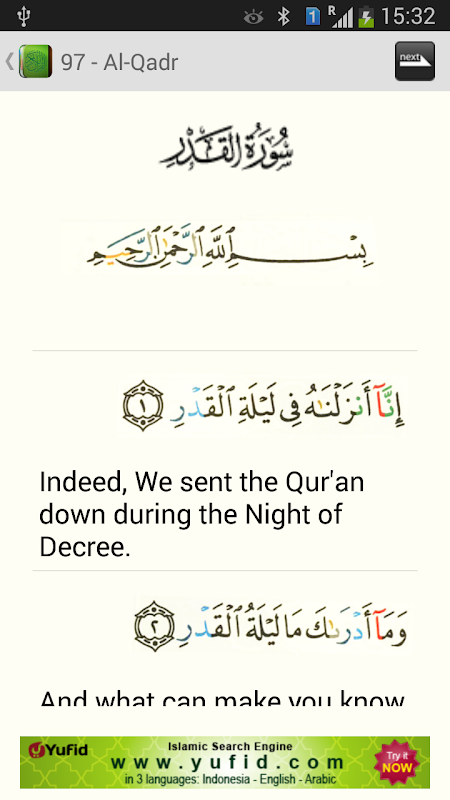 1
R
15:32
97 - Al-Qadr
next
سُورَةُ الْقَدْرِ
بِسْمِ ٱللَّهِ ٱلرَّحْمَٰنِ ٱلرَّحِيمِ
إِنَّآ أَنزَلْنَٰهُ فِى لَيْلَةِ ٱلْقَدْرِ ١
Indeed, We sent the Qur'an
down during the Night of
Decree.
وَمَآ أَدْرَىٰكَ مَا لَيْلَةُ ٱلْقَدْرِ ٢
And what can make you know
Yufid
Islamic Search Engine
www.yufid.com
in 3 languages: Indonesia - English - Arabic
Try it
NOW